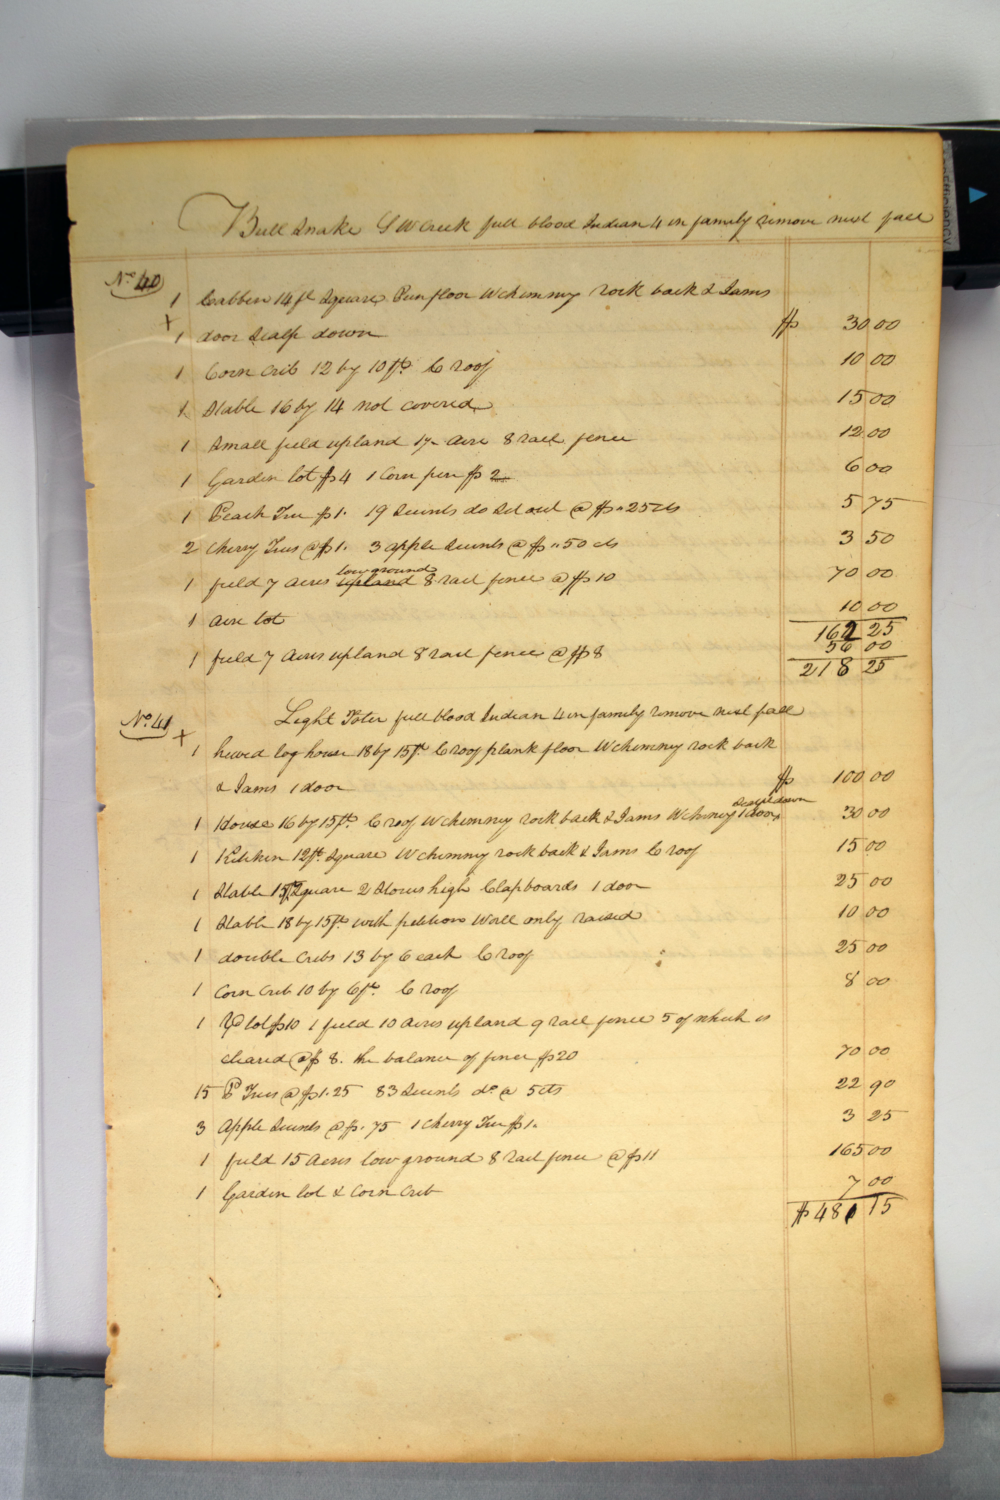 Bull Snake G W Creek full blood Indian 4 in family remove next fall
No 40
1 Cabbin 14 ft Square Pun floor W chimney rock back & Jams
+
1 door Scalp down $ 30 00
1 Corn Crib 12 by 10 ft C roof 10 00
1 Stable 16 by 14 not covered 15 00
1 Small field upland 1½ acre 8 rail fence 12 00
1 Garden lot $4 1 Corn pen $2 6 00
1 Peach Tree $1. 19 Scients do Set out @ $ " 25 cts 5 75
2 Cherry Trees @ $1. 3 apple Scients @ $ " 50 cts 3 50
low ground
1 field 7 acres upland 8 rail fence @ $10 70 00
1 acre lot 10 00
162 25
56 00
1 field 7 Acres upland 8 rail fence @ $8
218 25
No 41
Light Toter full blood Indian 4 in family remove next fall
+
1 hewed log house 18 by 15 ft C roof plank floor W chimney rock back
& Jams 1 door $ 100 00
Scalp down
1 House 16 by 15 ft C roof W chimney rock back & Jams W chimney 1 door 30 00
1 Kitchen 12 ft Square W chimney rock back & Jams C roof 15 00
1 Stable 15 ft Square 2 Stories high Clapboards 1 door 25 00
1 Stable 18 by 15 ft with petition Wall only raised 10 00
1 double Cribs 13 by 6 each C roof 25 00
1 Corn Crib 10 by 6 ft C roof 8 00
1 lot $10 1 field 10 acres upland 9 rail fence 5 of which is
cleared @ $8. the balance of fence $20 70 00
15 P Trees @ $1.25 83 Scients do @ 5 cts 22 90
3 Apple Scients @ $.75 1 Cherry Tree $1. 3 25
1 field 15 Acres low ground 8 rail fence @ $11 165 00
1 Garden lot & Corn Crib 7 00
$ 481 15